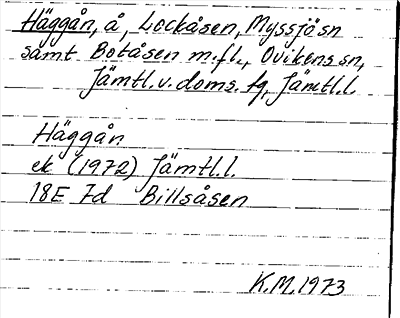 Häggån, å, Lockåsen, Myssjö sn
samt Botåsen m.fl., Ovikens sn,
Jämtl.v.doms.fg, Jämtl.l.
Häggån
ek (1972) Jämtl.l.
18E 7d Billsåsen
K.M.1973